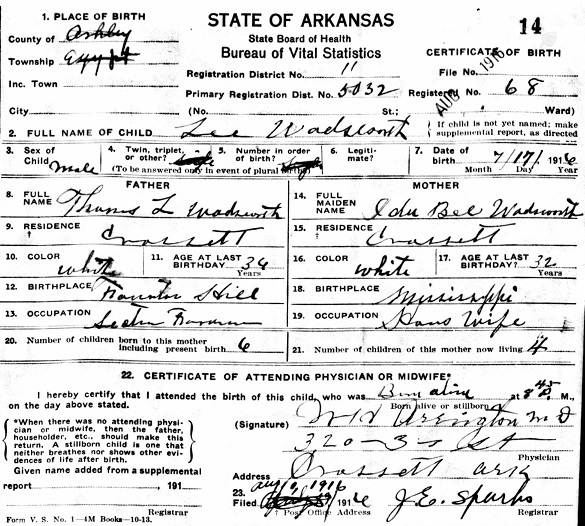 1. PLACE OF BIRTH
STATE OF ARKANSAS
14
County of Ashley
State Board of Health
Township
Bureau of Vital Statistics
CERTIFICATE OF BIRTH
Inc. Town
Registration District No. 11
File No.
AUG 1916
Primary Registration Dist. No. 5032
Registered No. 68
City (No. St.; Ward)
If child is not yet named; make supplemental report, as directed
2. FULL NAME OF CHILD Lee Wadsworth
3. Sex of Child Male
4. Twin, triplet, or other?
5. Number in order of birth?
(To be answered only in event of plural births)
6. Legiti-mate?
7. Date of birth 7/17/1916
Month Day Year
FATHER
MOTHER
8. FULL NAME Thomas L Wadsworth
14. FULL MAIDEN NAME Ida Bel Wadsworth
9. RESIDENCE † Crossett
15. RESIDENCE † Crossett
10. COLOR white
11. AGE AT LAST BIRTHDAY 34 Years
16. COLOR white
17. AGE AT LAST BIRTHDAY? 32 Years
12. BIRTHPLACE Hill
18. BIRTHPLACE Mississippi
13. OCCUPATION
19. OCCUPATION Hous Wife
20. Number of children born to this mother including present birth 6
21. Number of children of this mother now living 4
22. CERTIFICATE OF ATTENDING PHYSICIAN OR MIDWIFE*
I hereby certify that I attended the birth of this child, who was Born alive at 8 M.,
Born alive or stillborn
on the day above stated.
*When there was no attending physi-
cian or midwife, then the father,
householder, etc., should make this
return. A stillborn child is one that
neither breathes nor shows other evi-
dences of life after birth.
(Signature) Arrington M D
320-3 St
Physician
Given name added from a supplemental
report , 191
Address Crossett Ark
Registrar
23. Filed Aug 10, 1916 1916 J.E. Sparks
† Post Office Address
Registrar
Form V. S. No. 1—4M Books—10-13.